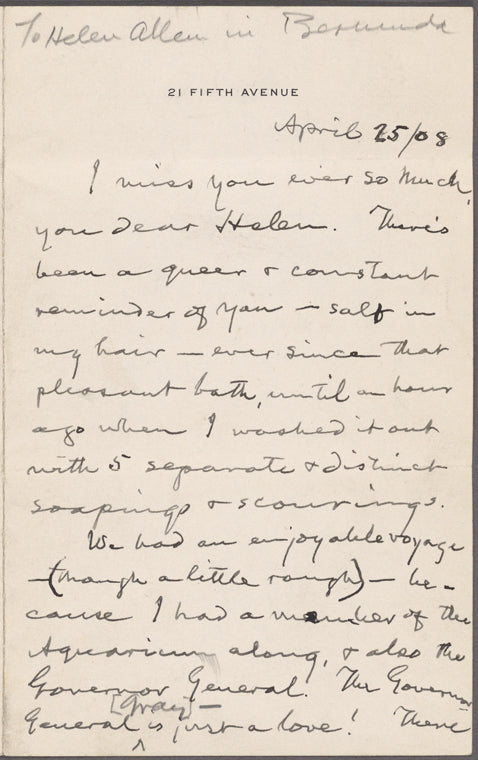 To Helen Allen in Bermuda
21 FIFTH AVENUE
April 25/08
I miss you ever so much,
you dear Helen. There's
been a queer & constant
reminder of you — salt in
my hair — ever since that
pleasant bath, until an hour
ago when I washed it out
with 5 separate & distinct
soapings & scourings.
We had an enjoyable voyage
— (though a little rough) — be-
cause I had a member of the
Aquarium along, & also the
Governor General. The Governor
[Gray] —
General ^ is just a love! There